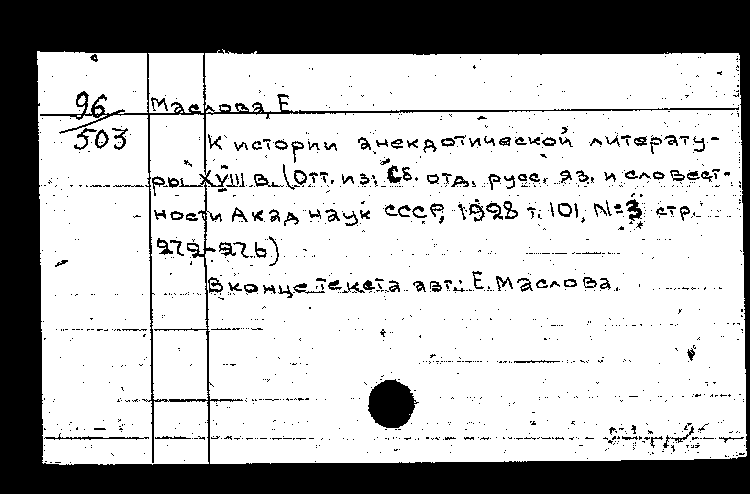 96
503
Маслова, Е.
К истории анекдотической литерату-
ры XVIII в. (Отт. из: Сб. отд. русс. яз. и словест-
ности Акад наук СССР, 1928 т. 101, №3 стр.
272-276)
В конце текста авт.: Е. Маслова.